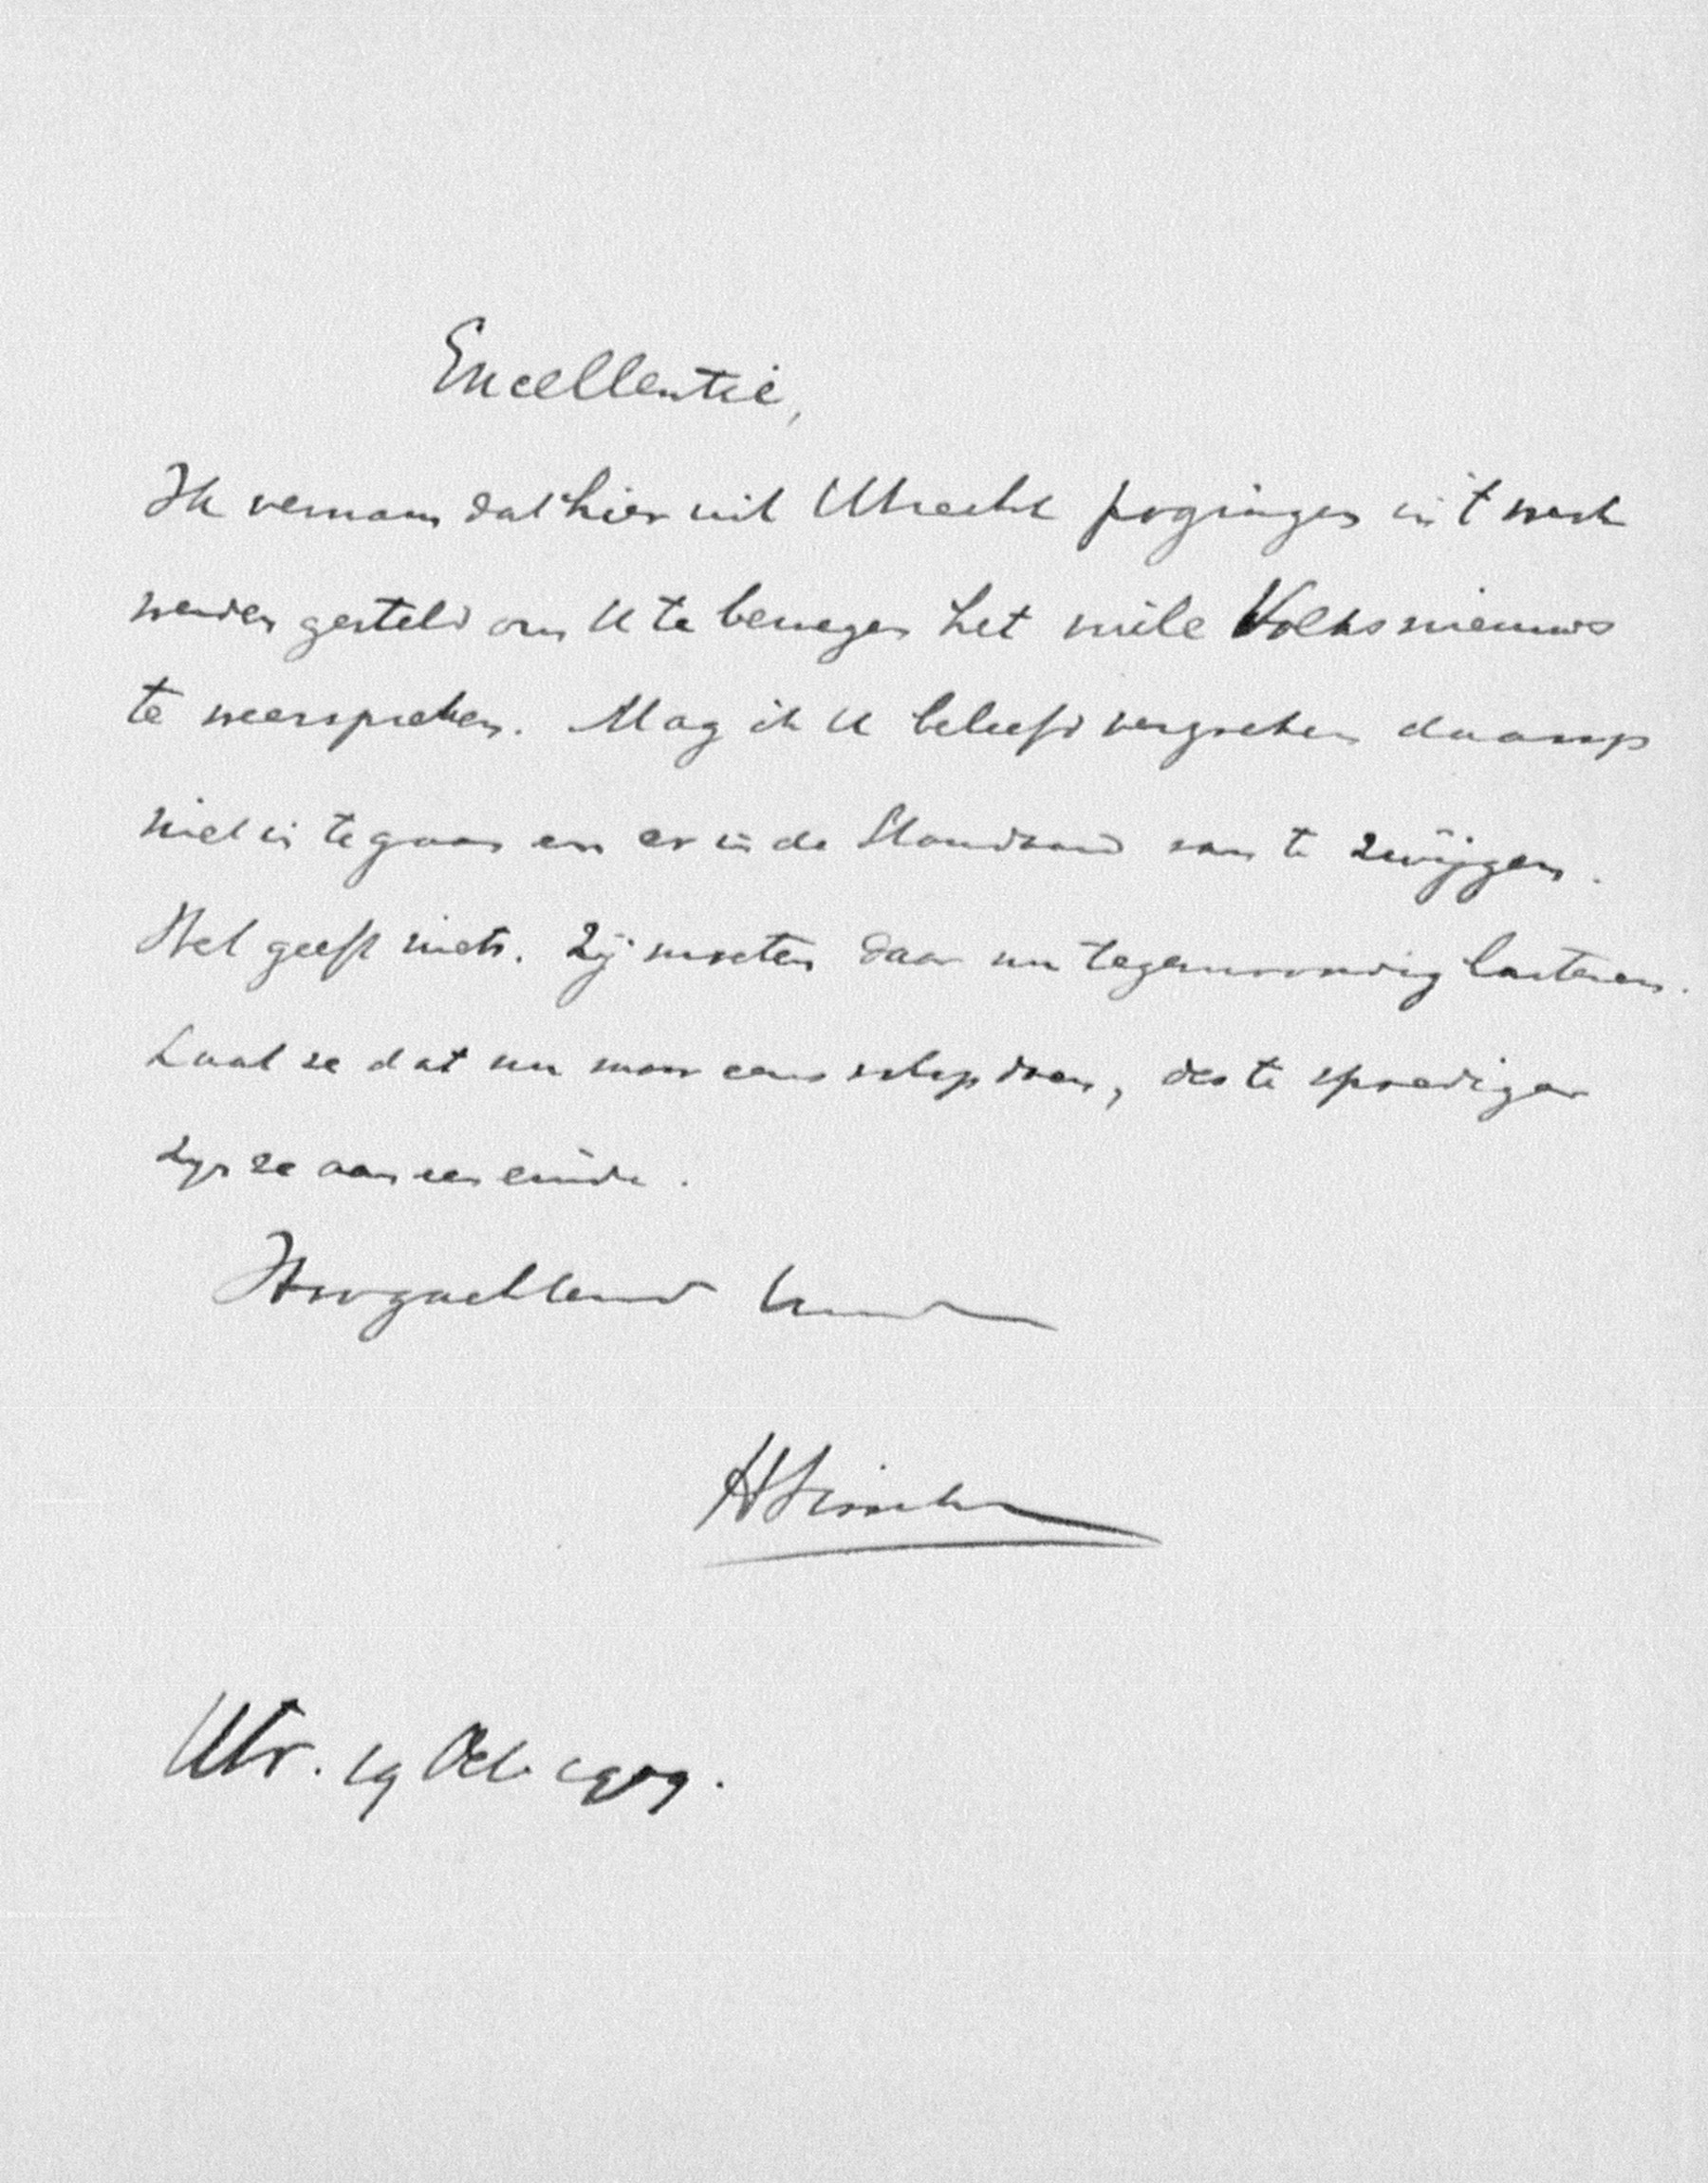 Excellentie,
Ik vernam dat hier uit Utrecht pogingen in 't werk
werden gesteld om U te bewegen het vuile Volksnieuws
te weerspreken. Mag ik U beleefd verzoeken daarop
niet in te gaan en er in de Standaard van te zwijgen.
Het geeft niets. Zij moeten daar nu tegenwoordig lasteren.
Laat ze dat nu maar eens volop doen, des te spoediger
zijn ze aan een einde.
Hoogachtend
HVisscher
Utr. 19 Oct. 1909.